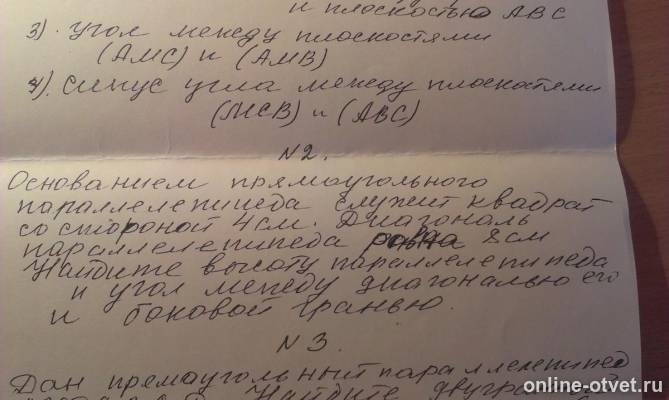 и плоскостью ABC
3). угол между плоскостями
(AMC) и (AMB)
4). синус угла между плоскостями
(MCB) и (ABC)
N2.
Основанием прямоугольного
параллелепипеда служит квадрат
со стороной 4 см. Диагональ
параллелепипеда равна 8 см
Найдите высоту параллелепипеда
и угол между диагональю его
и боковой гранью.
N3.
Дан прямоугольный параллелепипед
Найдите двугран
online-otvet.ru